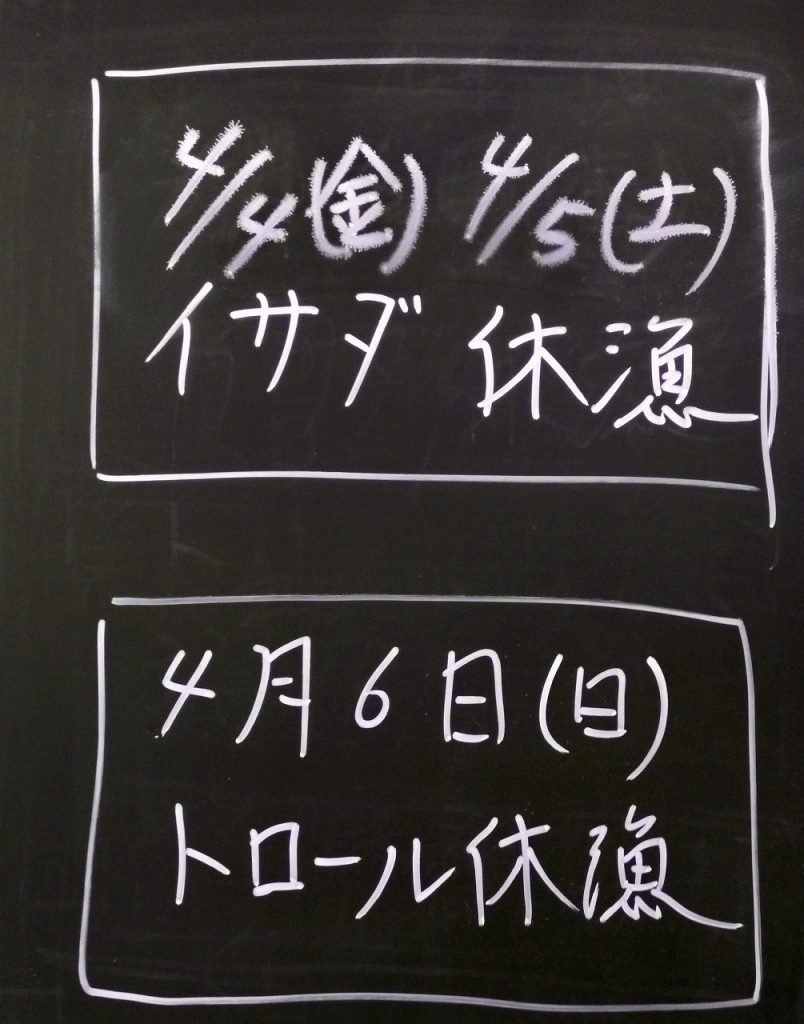 4/4(金) 4/5(土)
イサダ 休漁
4月6日(日)
トロール休漁